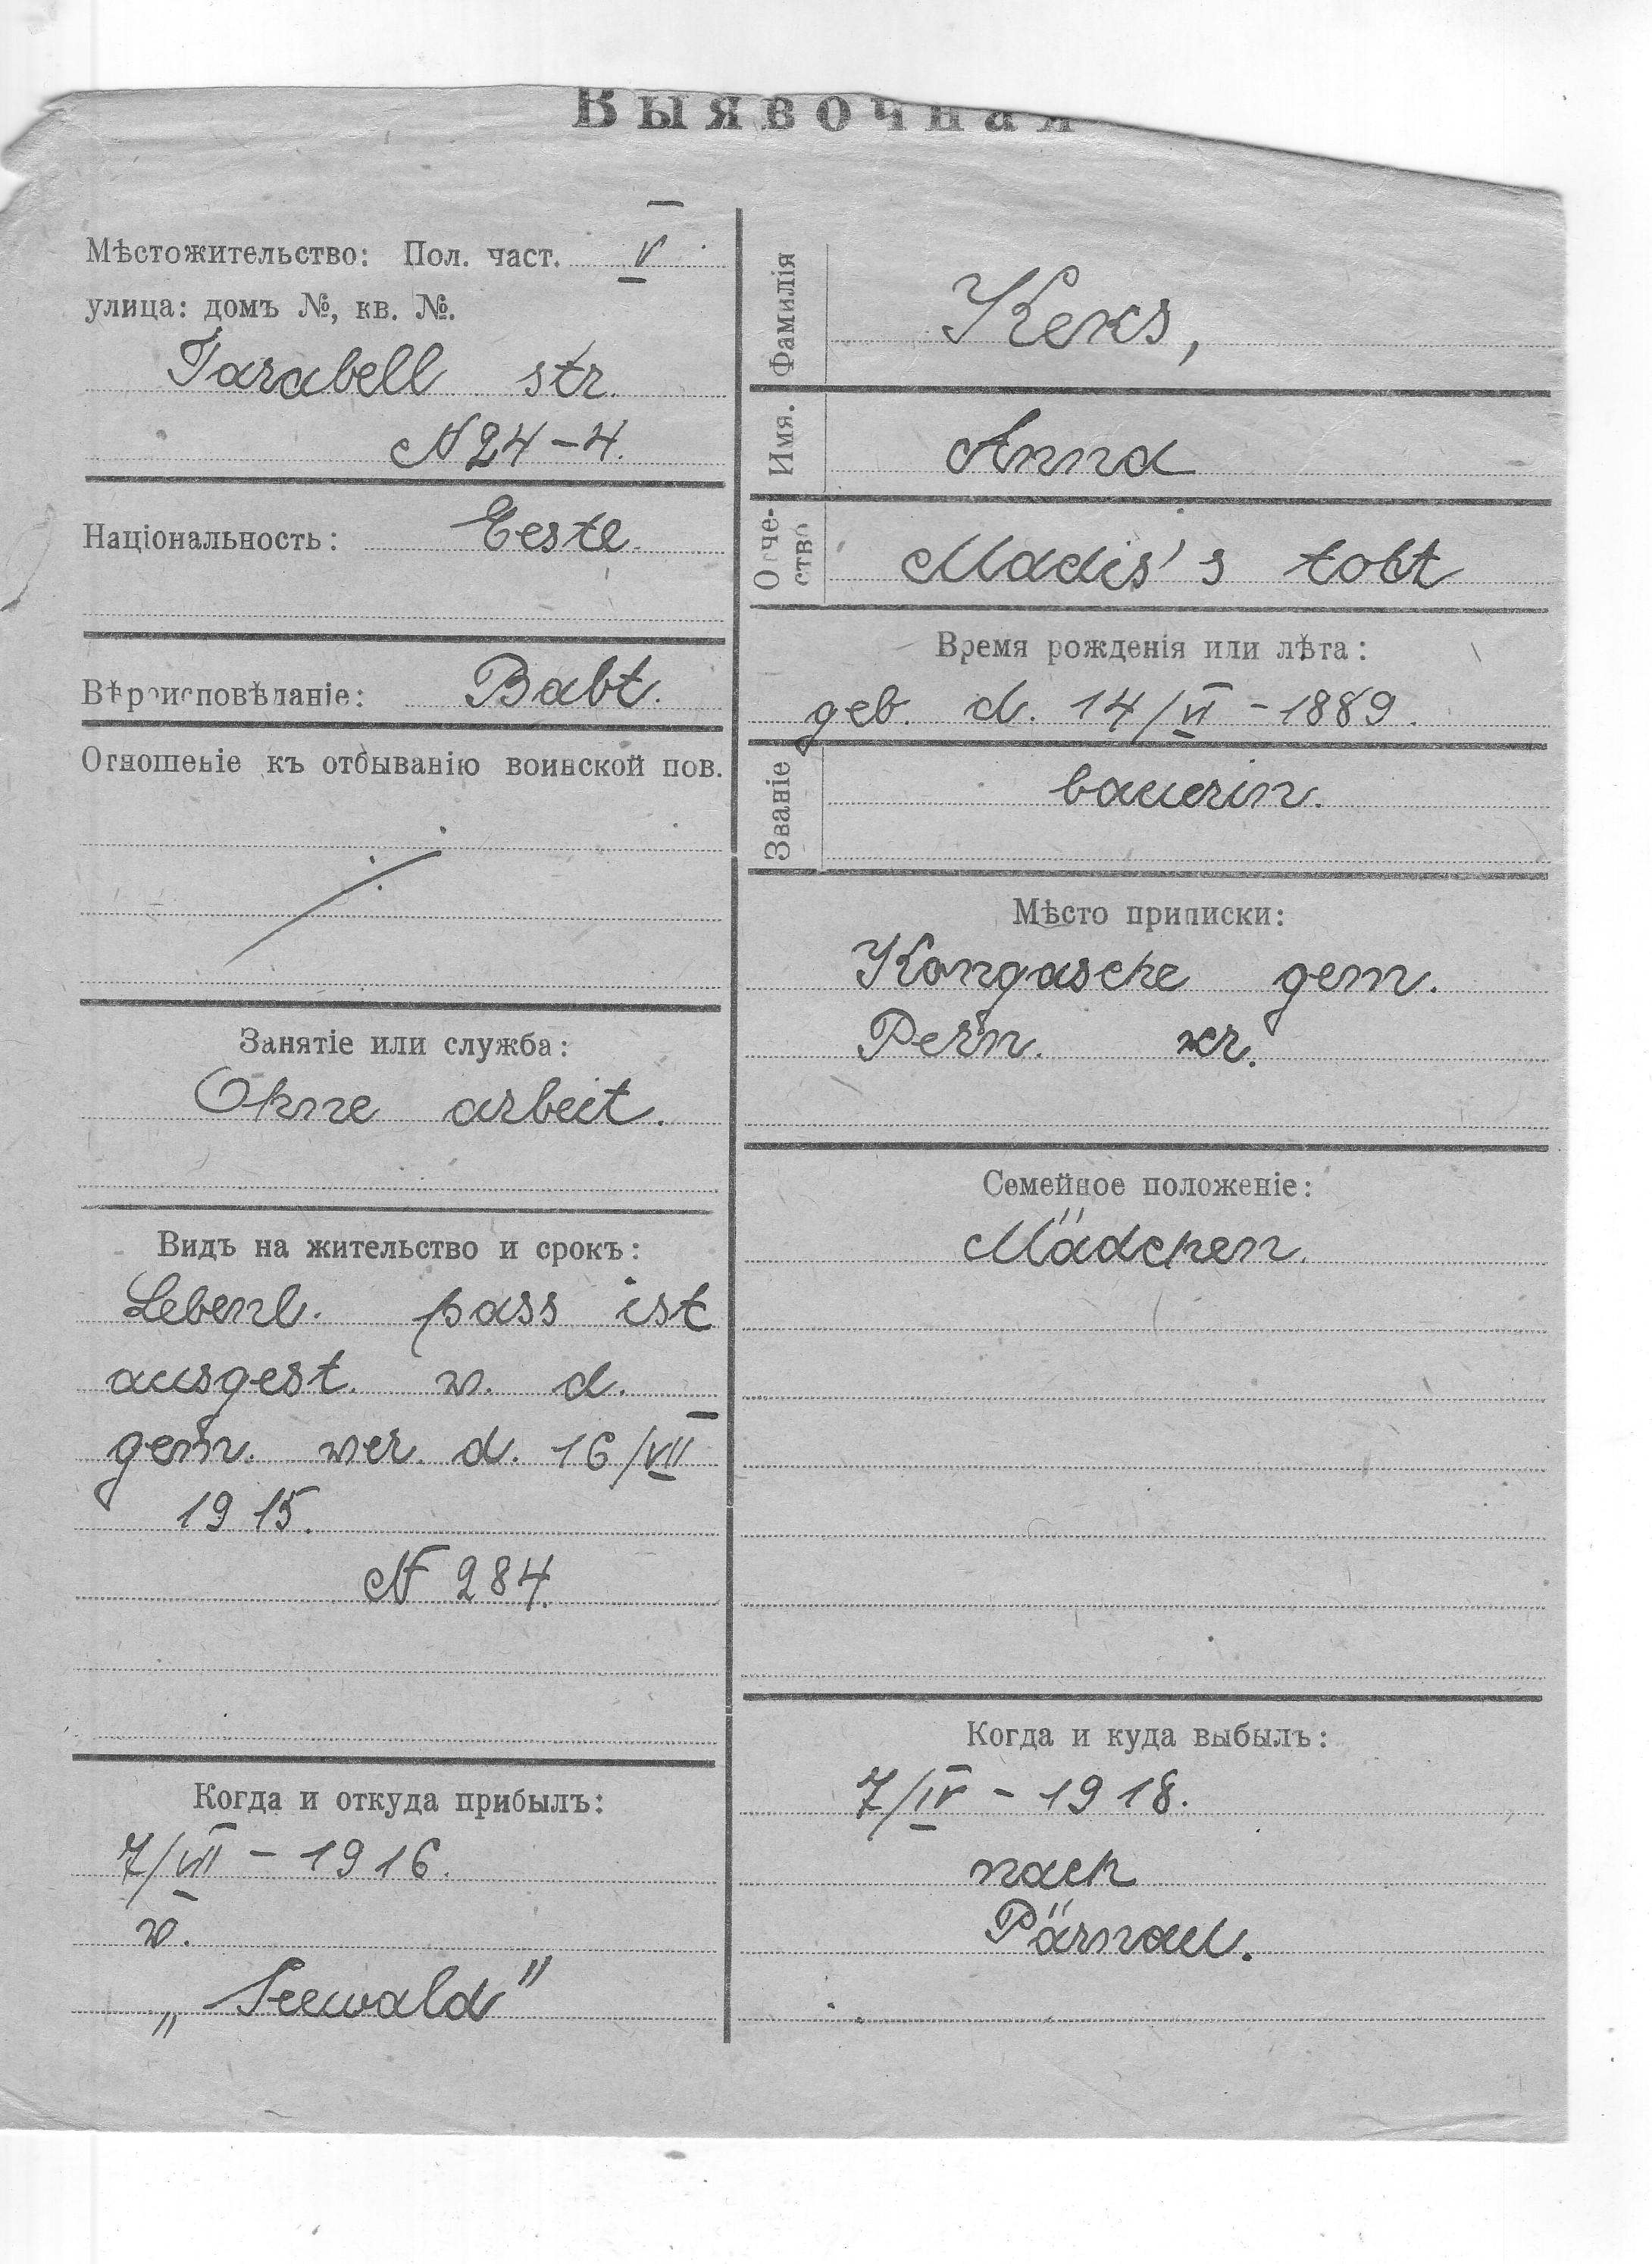 Выявочная
Мѣстожительство: Пол. част. V
улица: домъ №, кв. №.
Tarabell str.
N 24-4.
Національность: Eeste.
Вѣроисповѣданіе: Babt.
Отношеніе къ отбыванію воинской пов.
Занятіе или служба:
Ohne arbeit.
Видъ на жительство и срокъ:
Lebenl. pass ist
ausgest. v. d.
gem. ver. d. 16/VII
1915.
N 284.
Когда и откуда прибылъ:
7/VII - 1916.
v.
„Seewald"
Фамилія Keks,
Имя. Anna
Отче-
ство Madis's toht
Время рожденія или лѣта:
geb. d. 14/VI - 1889.
Званіе bauerin.
Мѣсто приписки:
Kongasche gem.
Pern. kr.
Семейное положеніе:
Mädchen.
Когда и куда выбылъ:
7/IV - 1918.
nach
Pärnau.